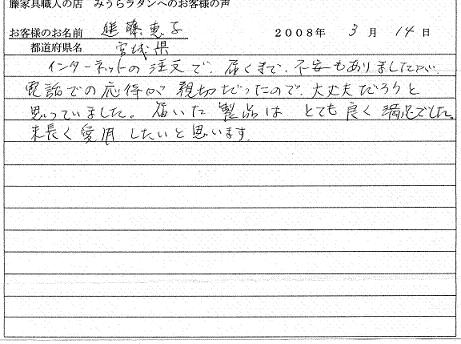 籐家具職人の店 みうらラタンへのお客様の声
お客様のお名前 進藤恵子 2008年 3月 14日
都道府県名 宮城県
インターネットの注文で、届くまで、不安もありましたが、
電話での応待が親切だったので、大丈夫だろうと
思っていました。届いた製品はとても良く満足でした。
末長く愛用したいと思います。